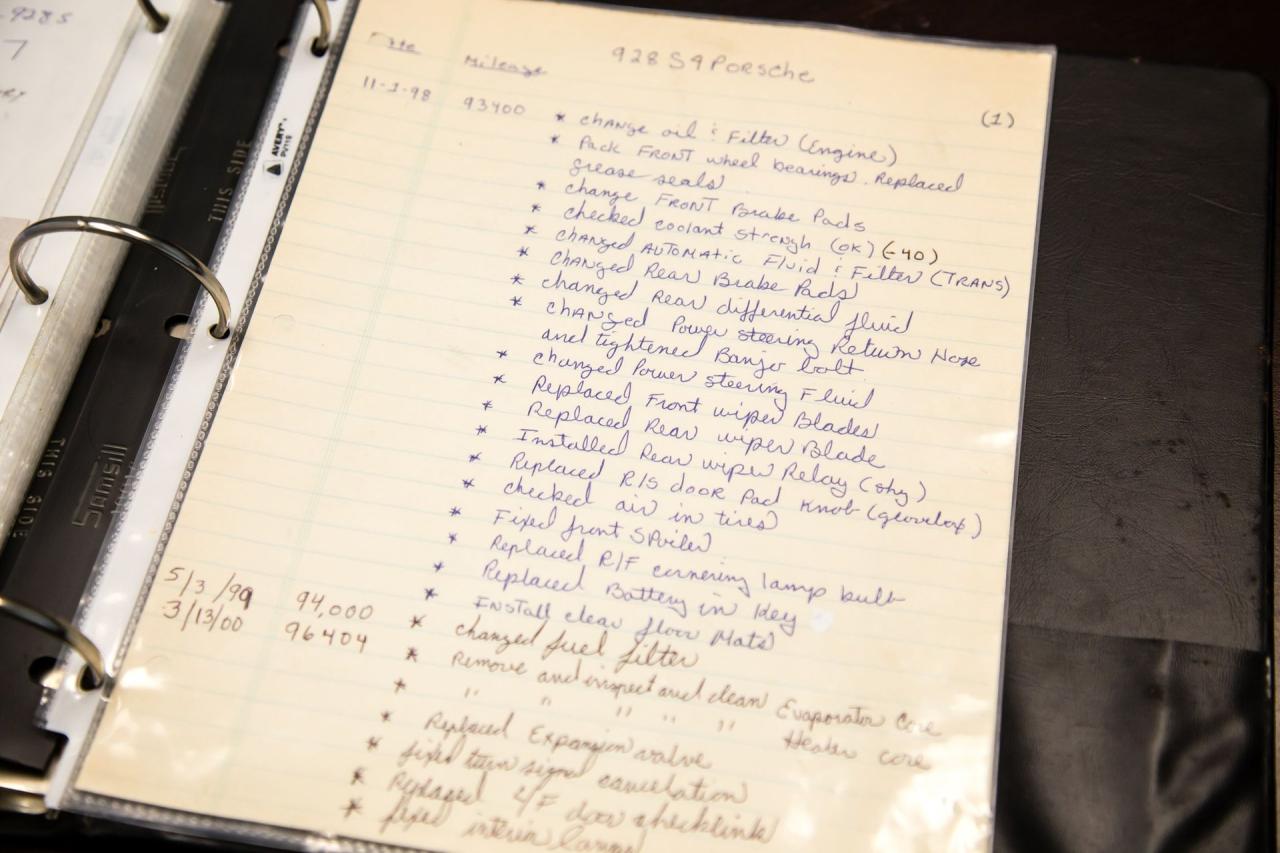 -928S
7
THIS SIDE
AVERY
PV119
THIS SIDE
Samsill
Date Mileage 928 S4 Porsche
(1)
11-1-98 93400 * change oil & Filter (Engine)
* Pack FRONT wheel bearings. Replaced
grease seals
* change FRONT Brake Pads
* checked coolant strengh (OK) (-40)
* changed AUTOMatic Fluid & Filter (TRANS)
* changed Rear Brake Pads
* changed Rear differential fluid
* changed Power steering Return Hose
and tightened Banjo bolt
* changed Power steering Fluid
* Replaced Front wiper Blades
* Replaced Rear wiper Blade
* Installed Rear wiper Relay
* Replaced R/S door Pad Knob (glovebox)
* checked air in tires
* Fixed front SPoiler
* Replaced R/F cornering lamp bulb
* Replaced Battery in Key
* Install clear floor Mats
5/3/99 94,000 * changed fuel filter
3/13/00 96404 * Remove and inspect and clean Evaporator Core
* " " " " " Heater core
* Replaced Expansion valve
* fixed turn signal cancelation
* Replaced L/F door checklink
* fixed interior